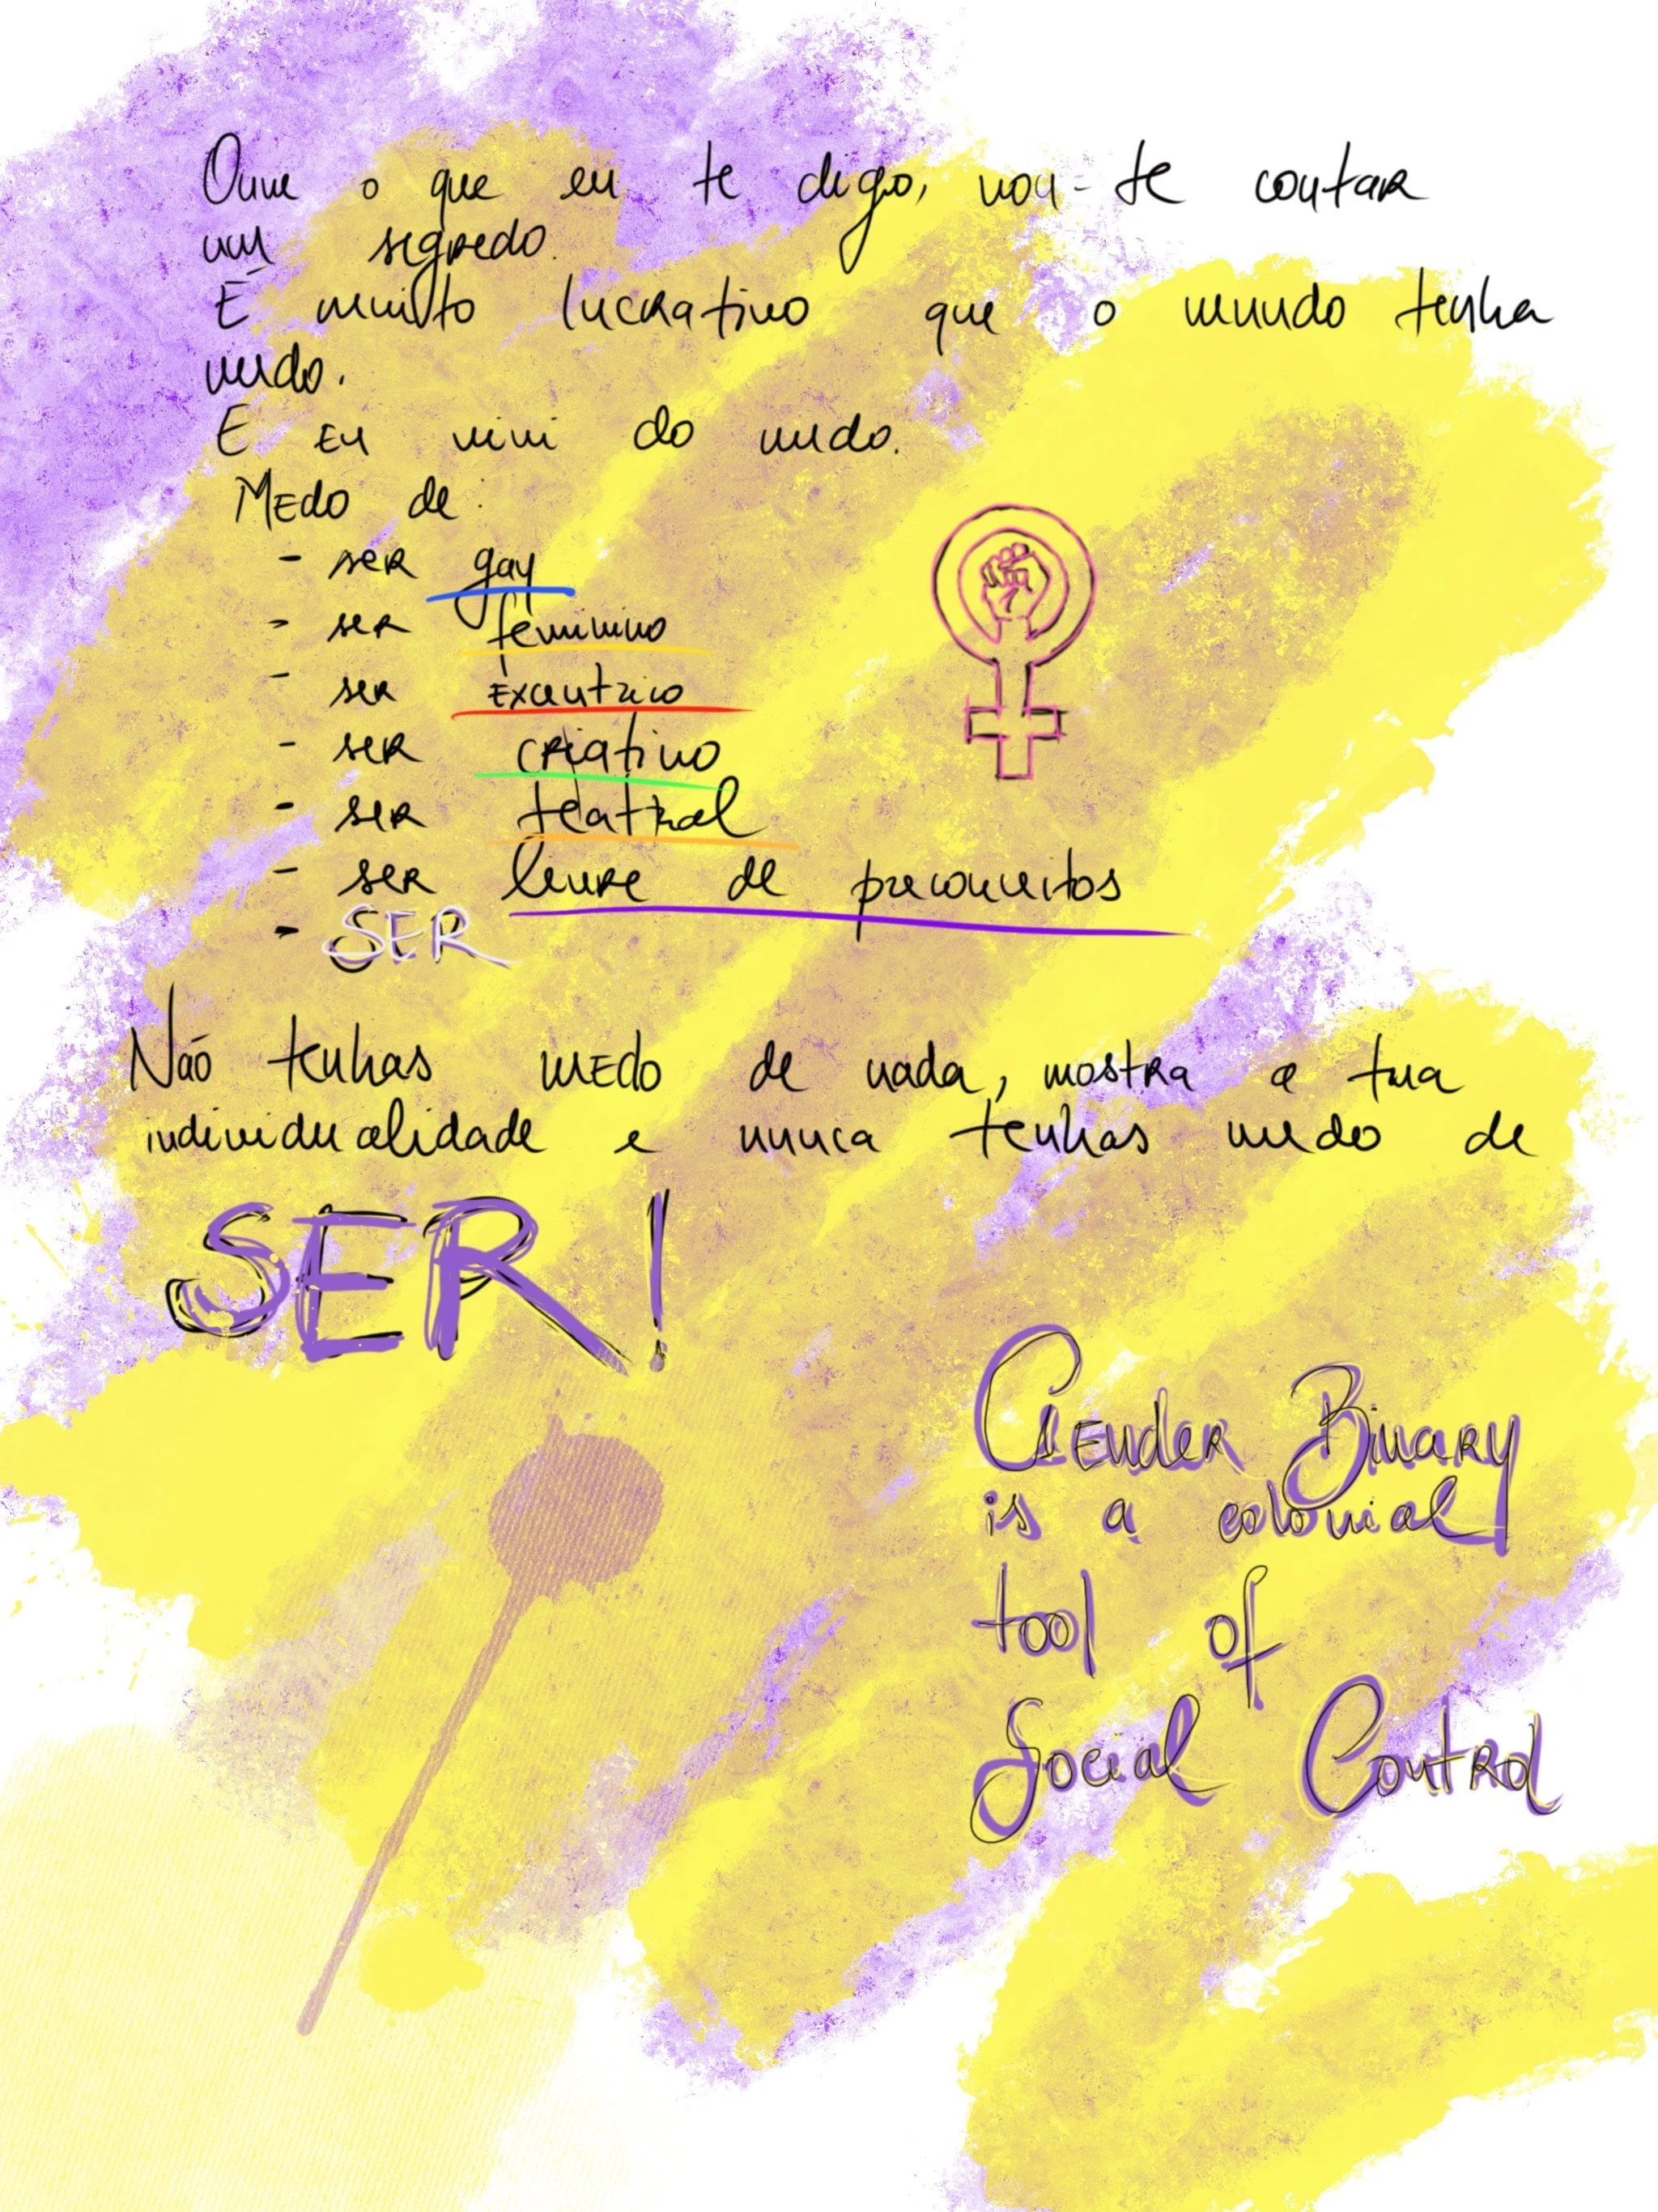 Ouve o que eu te digo, vou-te contar
um segredo.
É muito lucrativo que o mundo tenha
medo.
E eu vivi do medo.
Medo de:
- ser gay
- ser feminino
- ser excentrico
- ser criativo
- ser teatral
- ser livre de preconceitos
- SER
Não tenhas medo de nada, mostra a tua
individualidade e nunca tenhas medo de
SER!
Gender Binary
is a colonial
tool of
Social Control